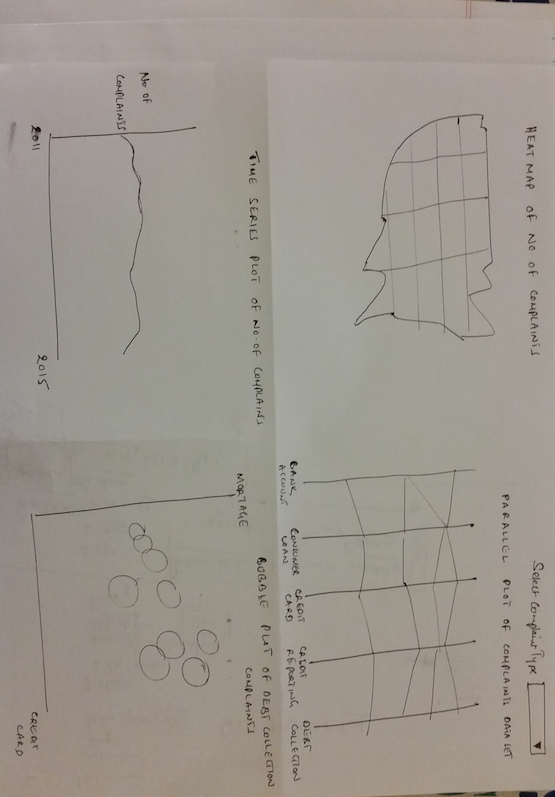 Select Complaint Type
HEAT MAP OF NO. OF COMPLAINTS
PARALLEL PLOT OF COMPLAINTS DATA SET
BANK
ACCOUNT
CONSUMER
LOAN
CREDIT
CARD
CREDIT
REPORTING
DEBT
COLLECTION
TIME SERIES PLOT OF NO. OF COMPLAINTS
NO OF
COMPLAINTS
2011
2015
BUBBLE PLOT OF DEBT COLLECTION
COMPLAINTS
MORTAGE
CREDIT
CARD